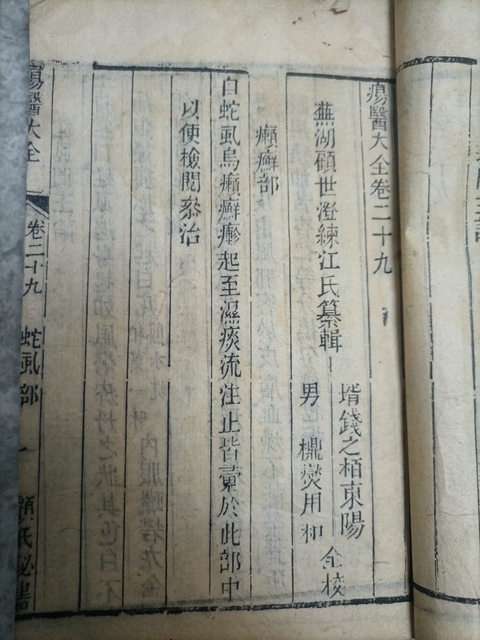 瘍醫大全卷二十九
蕪湖顧世澄練江氏纂輯
壻錢之栢東陽
男 櫆燮用和
仝校
癩癬部
白蛇虱烏癩癬瘮起至濕痰流注止皆彙於此部中
以便檢閱叅治
瘍醫大全
卷二十九
蛇虱部
一
顧氏秘書